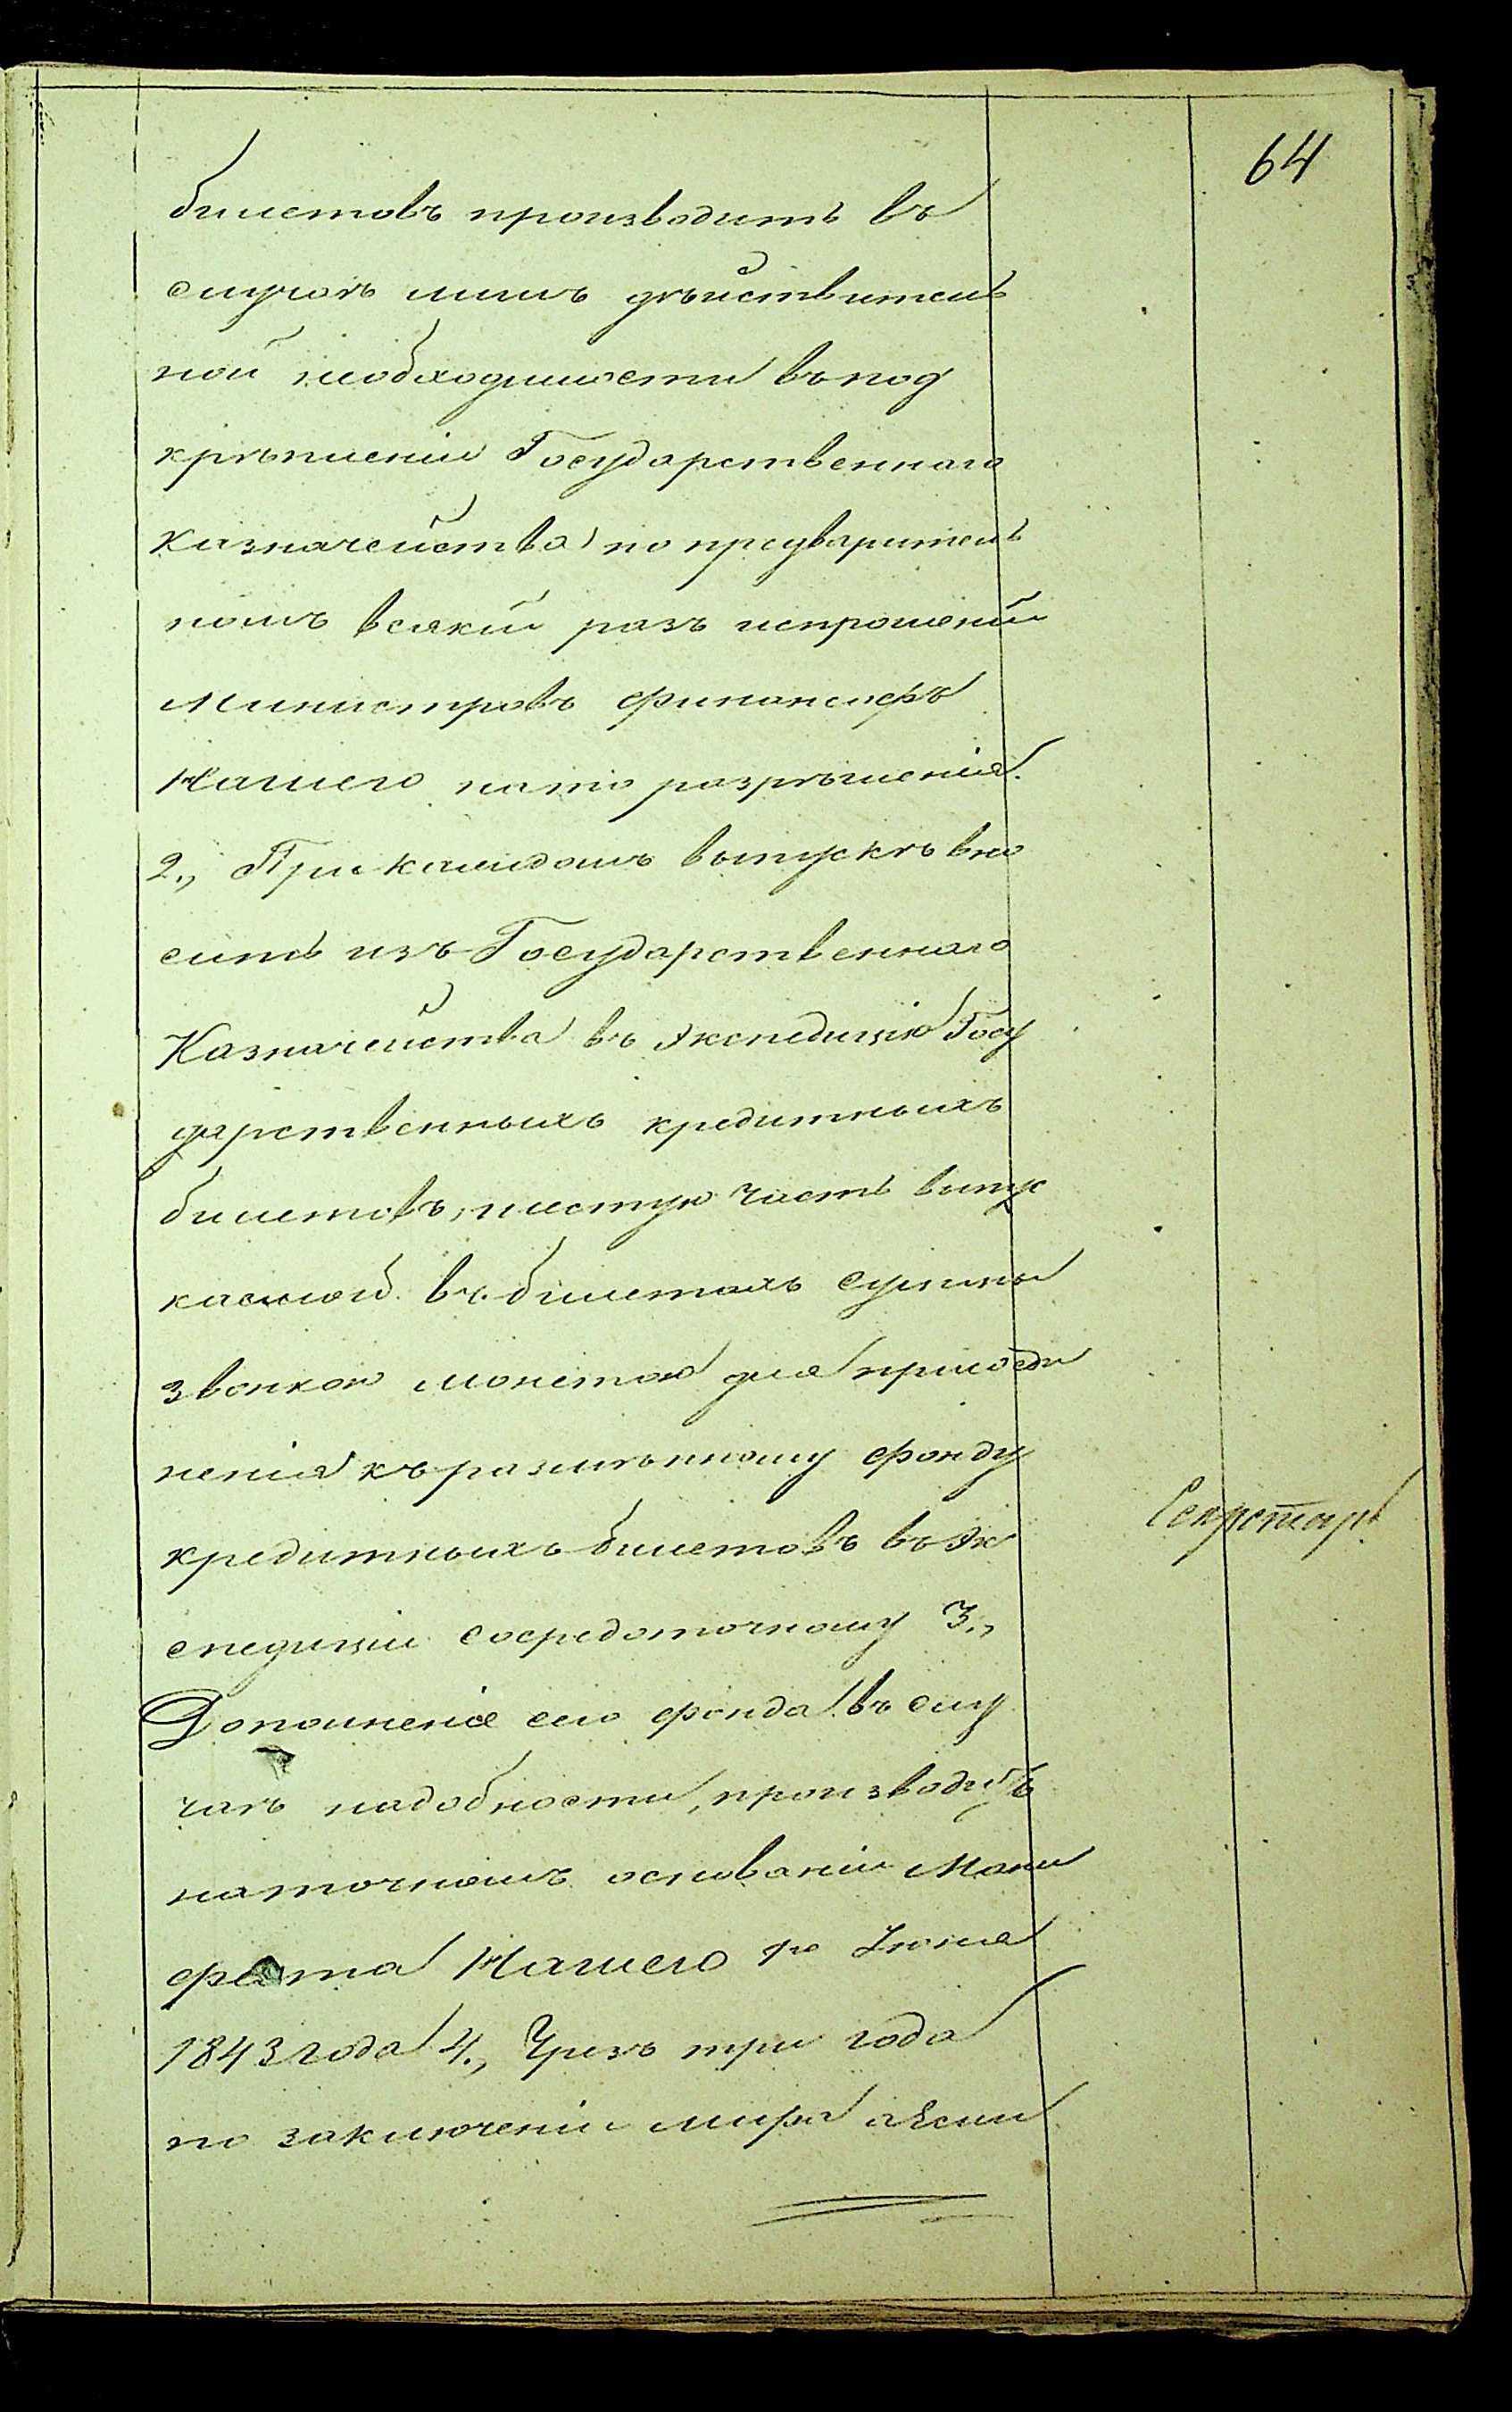 64
билетовъ производить въ
случаѣ лишь дѣйствитель
ной необходимости въ под
крѣпленіи Государственнаго
Казначейства по предваритель
номъ всякій разъ испрошеніи
Министровъ финансовъ
Нашего на то разрѣшенія.
2., При каждомъ выпускѣ вно
сить изъ Государственнаго
Казначейства въ Экспедицію Госу
дарственныхъ кредитныхъ
билетовъ, шестую часть выпус
каемой въ билетахъ суммы
звонкою монетою для присоеди
ненія къ размѣнному фонду
кредитныхъ билетовъ въ Эк
спедиціи сосредоточному 3.,
Дополненіе сего фонда въ слу
чаѣ надобности, производить
на точномъ основаніи Мани
феста Нашего 1го Іюня
1843 года 4., Чрезъ три года
по заключеніи мира а Если
Секретарь